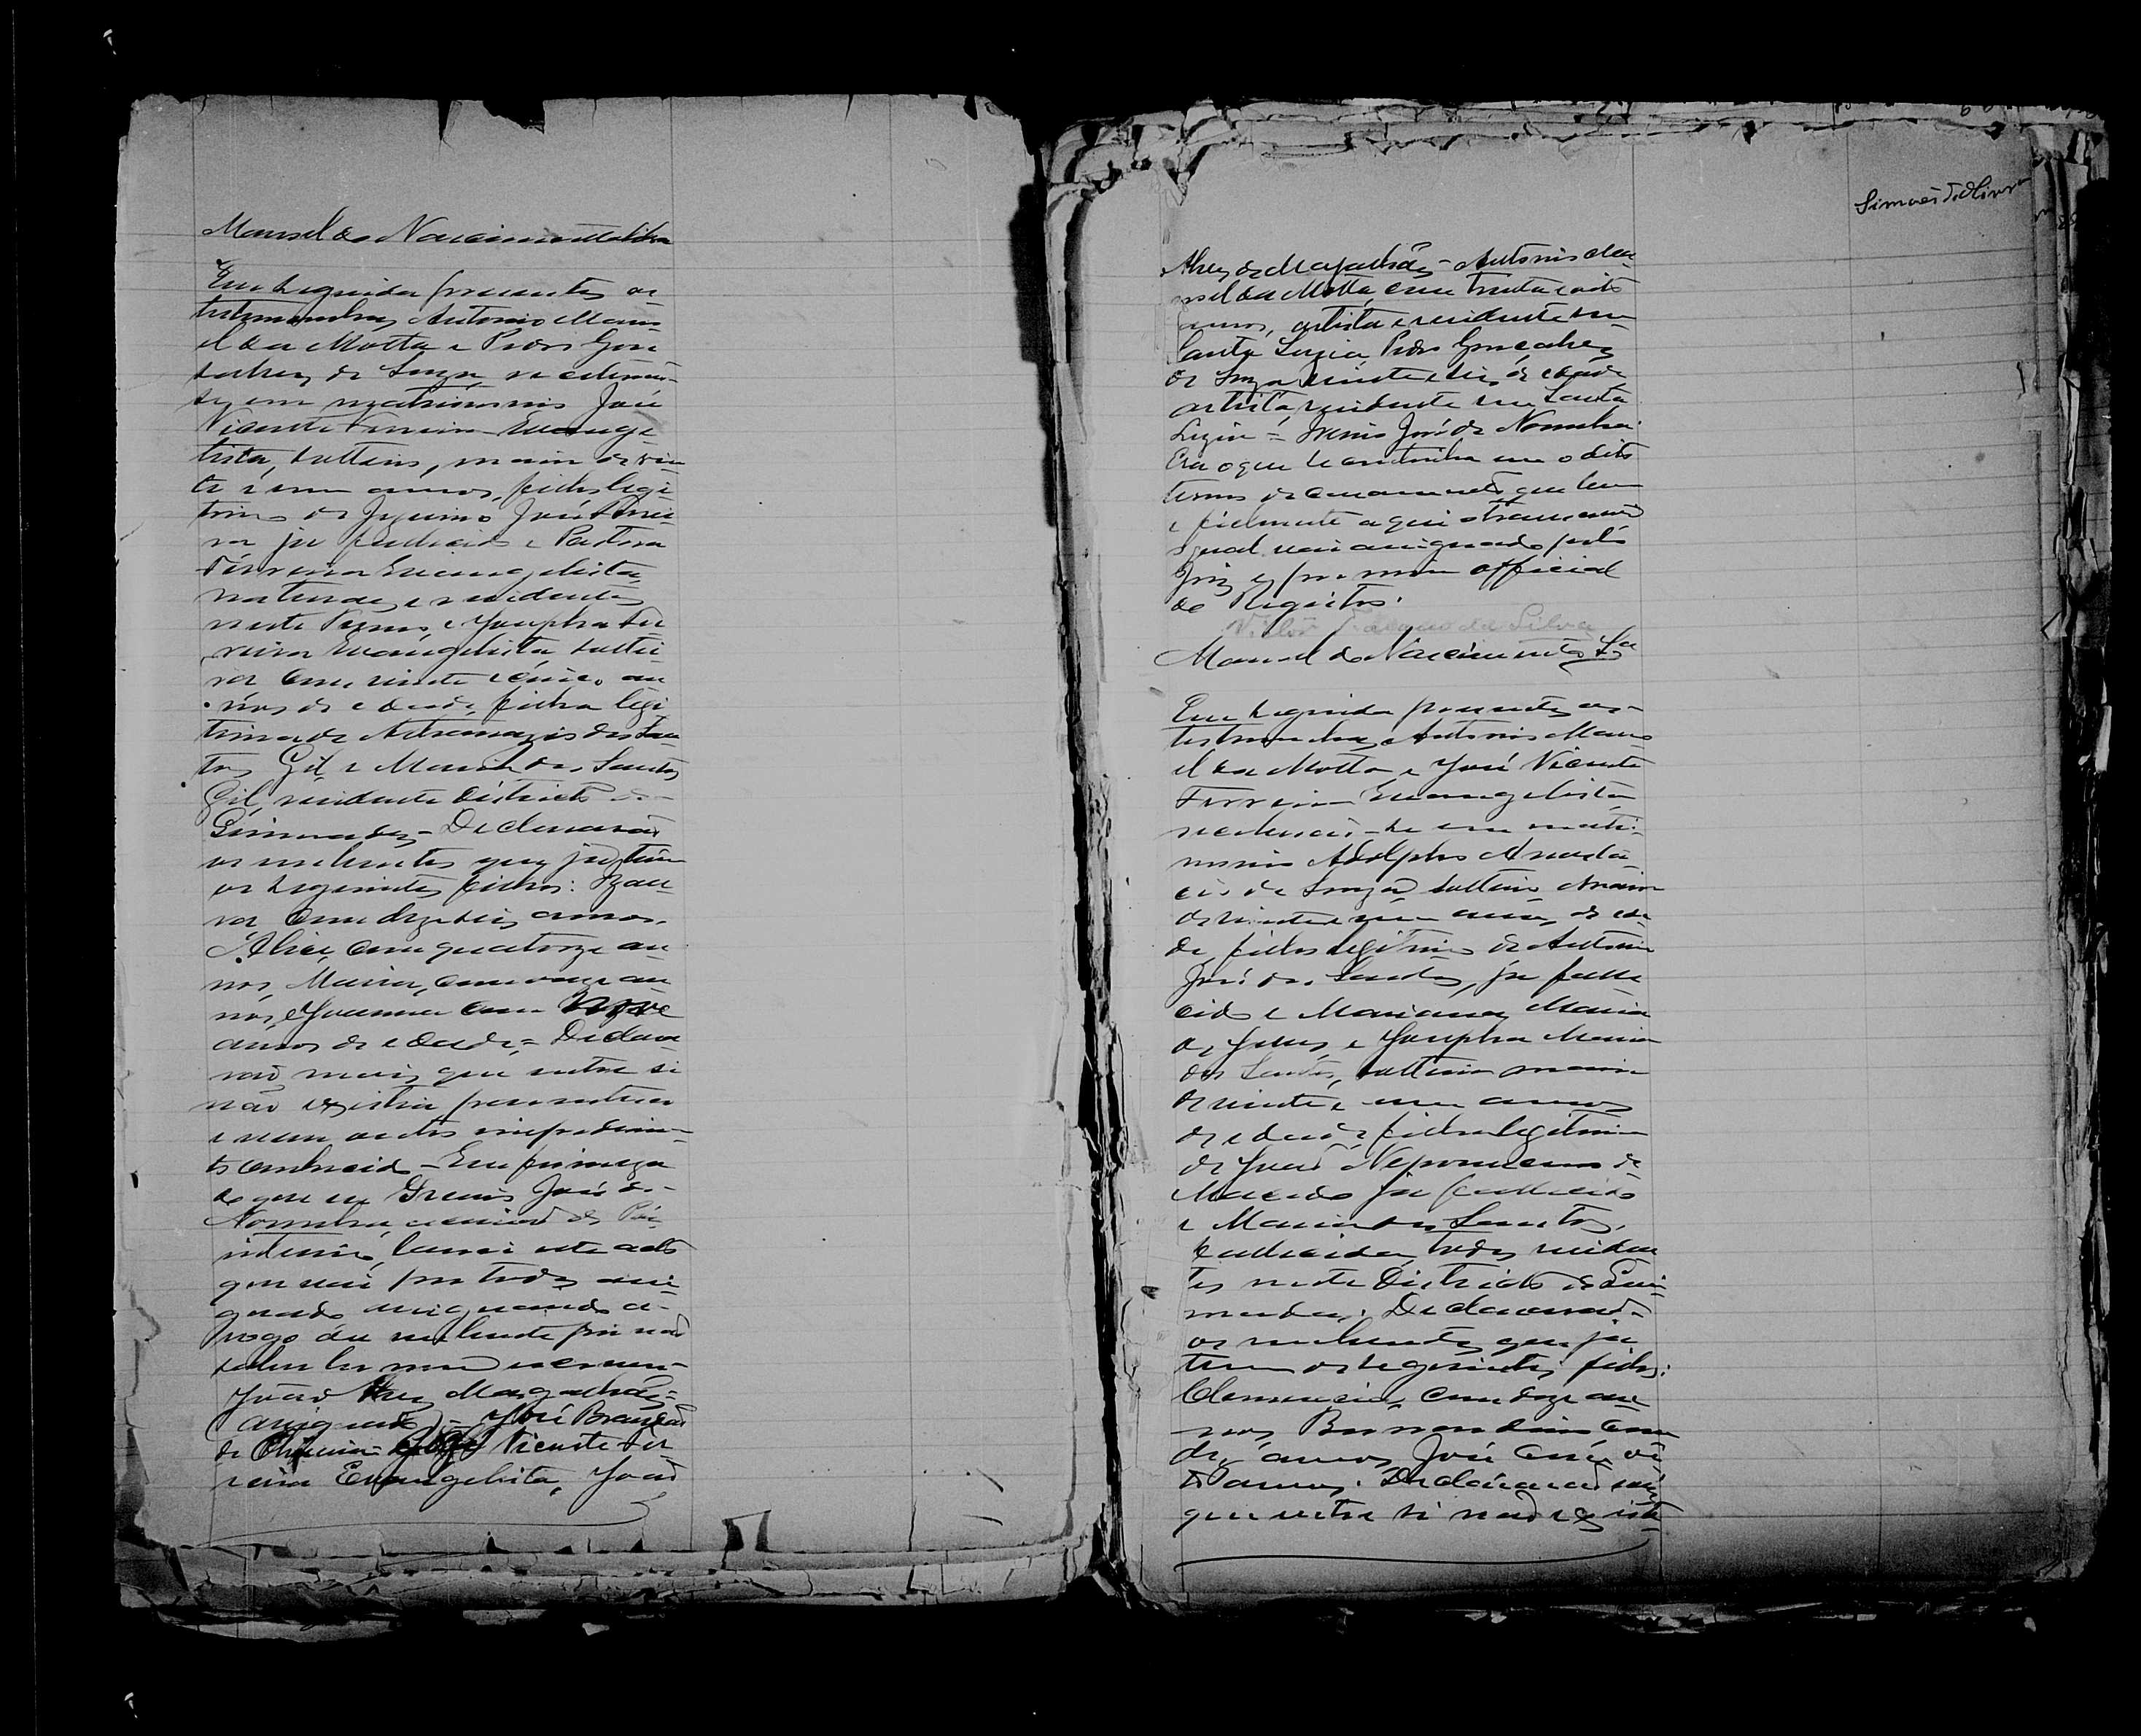 Manoel do Nascimento Silva
Em seguida presentes as
testemunhas Antonio Mano-
el da Motta e Pedro Gon
salves de Souza, receberam-
se em matrimonio José
Vicente Ferreira Evange
lista, solteiro, maior de vin
te e um annos, filho legi-
timo de José Ferrei-
ra já fallecido e
Ferreira Evangelista
naturaes e residentes
neste Termo e Josepha Fer
reira Evangelista soltei-
ra com vinte e cinco an
nos de edade, filha legi
tima de dos San-
tos Gil e Maria dos Santos
Gil, residente districto de
Guimarães - Declararão
os nubentes que já tem
os seguintes filhos:
com dezeseis annos,
Alice, com quatorze an-
nos, Maria, com onze an
nos, e Joanna com nove
annos de edade = Declara
rão mais que entre si
não existia parentesco
e nem outro impedimen-
to conhecido - Em firmeza
do que eu Irenio José de
Noronha escrivão de Paz
interino, lavrei este acto
que vai por todos assi-
gnado assignando a
rogo da nubente por não
saber ler nem escrever
João Alves Magalhães =
(assignado) = José Brandão
de Oliveira = José Vicente Fer
reira Evangelista, João
Simões d'Oliveira
Alves de Magalhães - Antonio Ma
noel da Motta, com trinta e oito
annos, artista e residente em
Santa Luzia, Pedro Gonsalves
de Souza vinte e seis de edade
artista, residente em Santa
Luzia = Irenio José de Noronha.
Era o que se continha em o dito
termo de casamento que bem
e fielmente aqui
o qual vai assignado pelo
Juiz e por mim official
do Registro.
da Silva
Manoel do Nascimento Sa
Em seguida presentes as
testemunhas Antonio Mano
el da Motta e José Vicente
Ferreira Evangelista
receberão-se em matri-
monio Adolpho Anasta-
cio de Souza solteiro maior
de vinte e um annos de eda
de, filho legitimo de Antonio
José dos Santos, já falle
cido e Marianna Maria
de Jesus, e Josepha Maria
dos Santos, solteira maior
de vinte e um annos
de edade filha legitima
de João Nepomuceno de
Macedo já fallecido
e Maria dos Santos,
fallecida, todos residen
tes neste Districto de Gui-
marães. Declararão
os nubentes que já
tem os seguintes filhos:
Clemencia, com doze an
nos, Bernardino com
dez annos, José com oi
to annos. Declararão mais
que entre si não existe